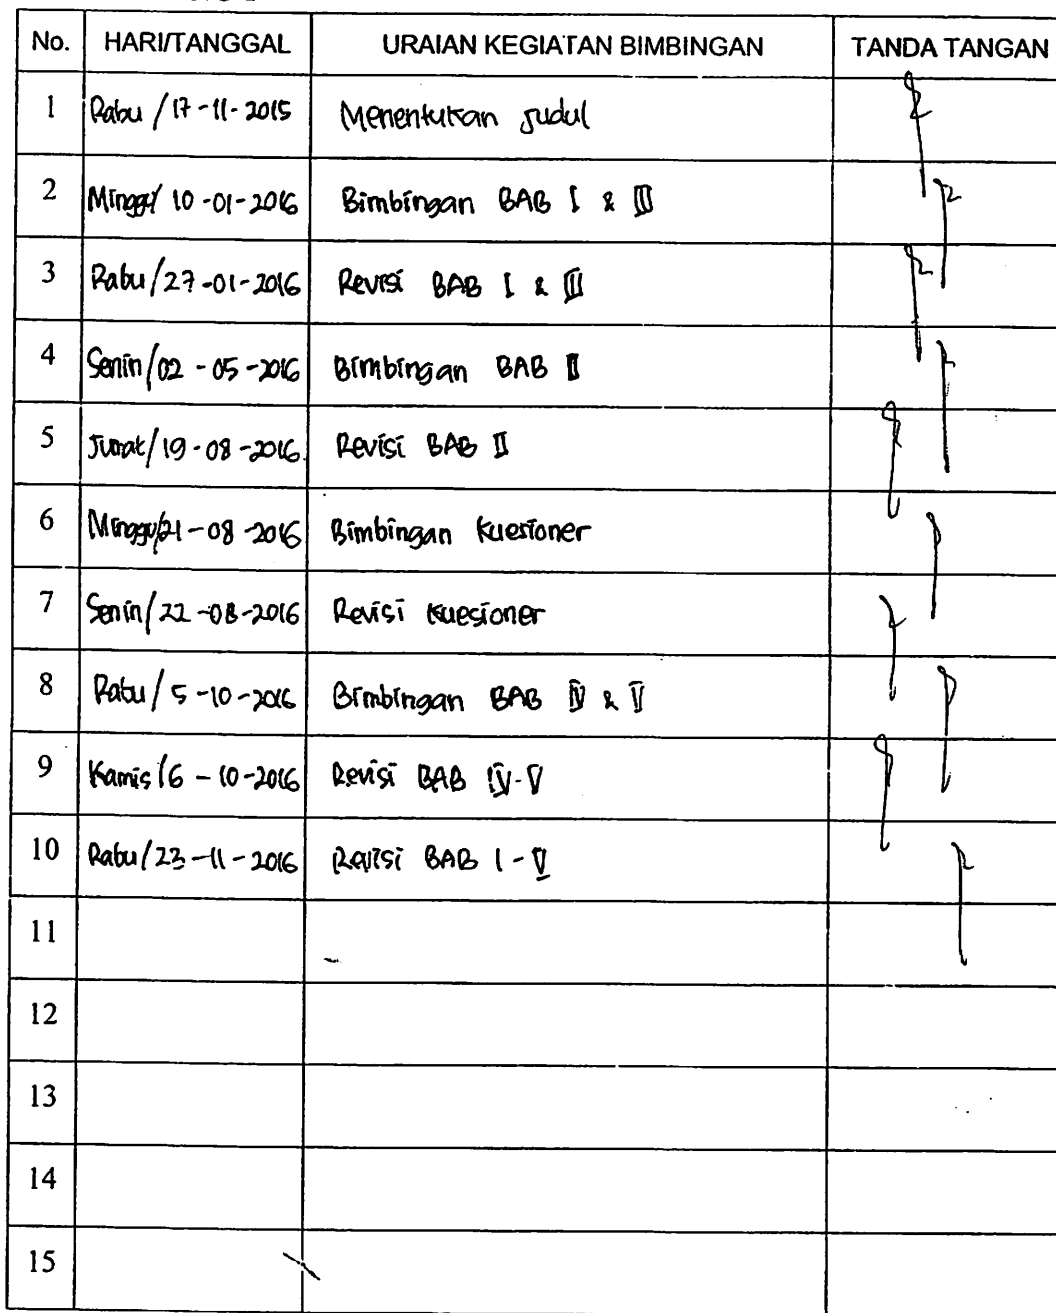 No. HARI/TANGGAL URAIAN KEGIATAN BIMBINGAN TANDA TANGAN
1 Rabu / 17-11-2015 Menentukan judul
2 Minggu/ 10-01-2016 Bimbingan BAB I & III
3 Rabu/27-01-2016 Revisi BAB I & III
4 Senin/02-05-2016 Bimbingan BAB II
5 Jumat/19-08-2016 Revisi BAB II
6 Minggu/21-08-2016 Bimbingan Kuesioner
7 Senin/22-08-2016 Revisi Kuesioner
8 Rabu/5-10-2016 Bimbingan BAB IV & V
9 Kamis/6-10-2016 Revisi BAB IV-V
10 Rabu/23-11-2016 Revisi BAB I-V
11
12
13
14
15